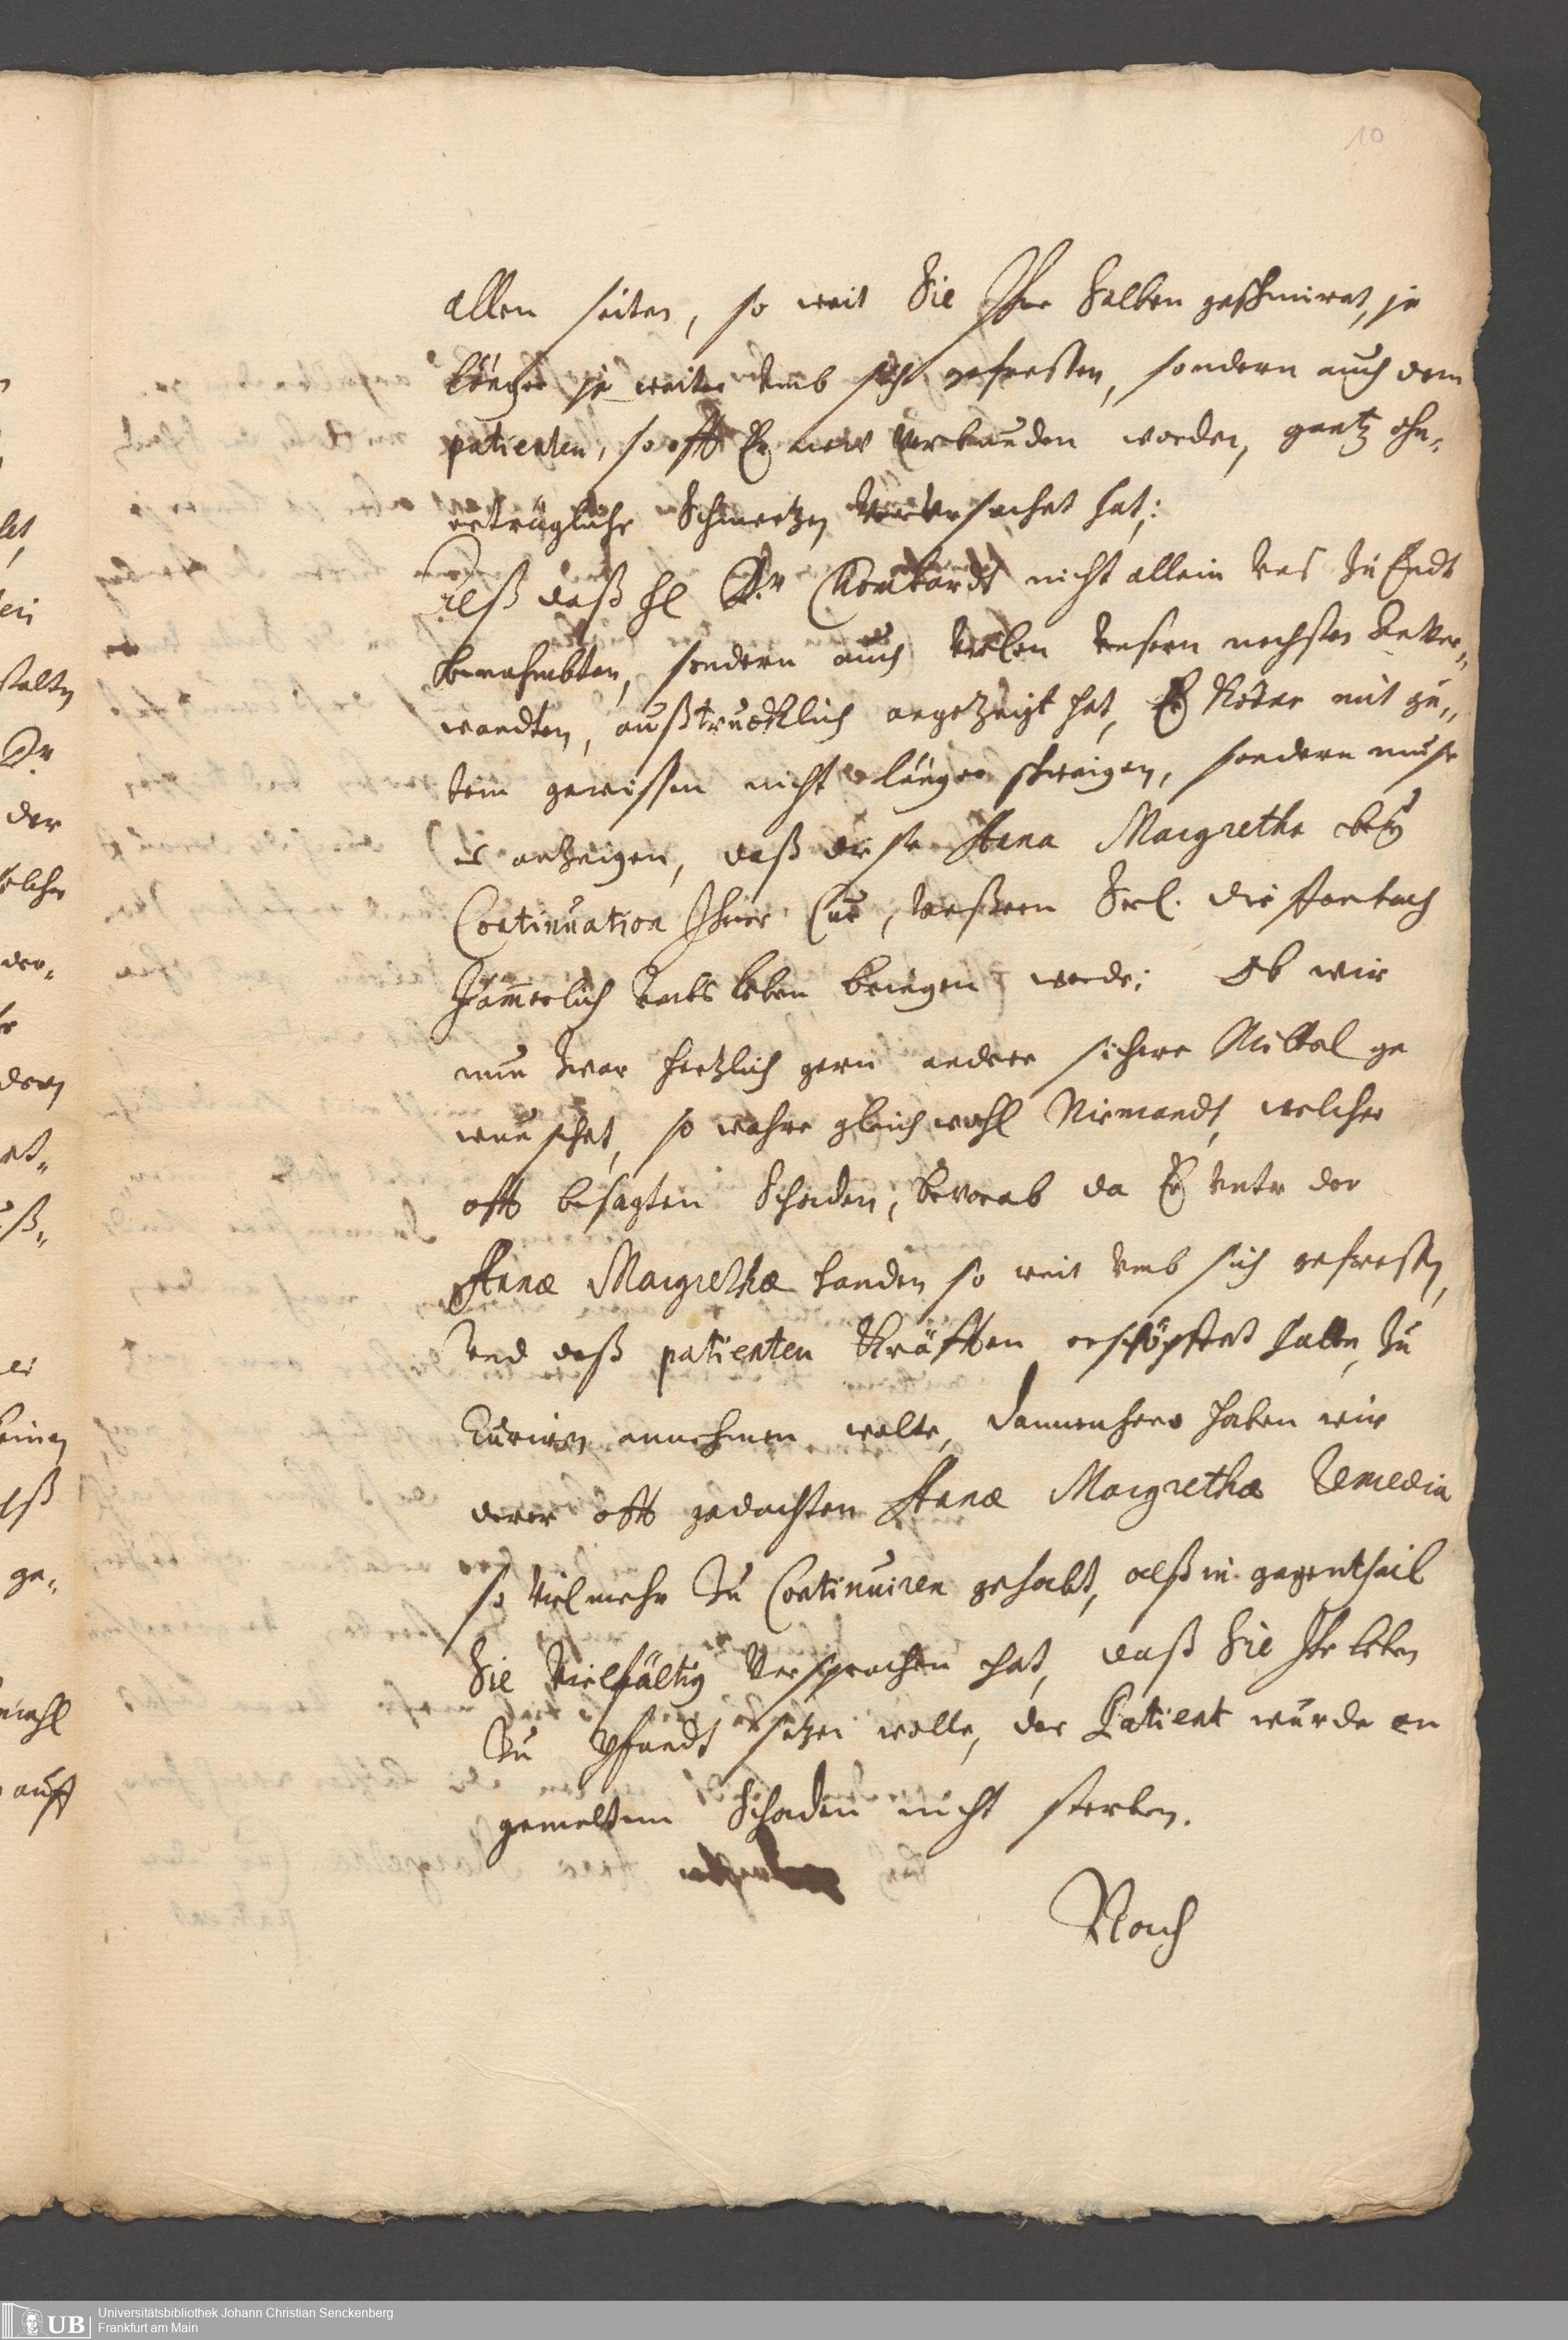 10
allen seiten, so weit Sie Ihre Salben geschmiret, je
länger je weiter vmb sich gefressen, sondern auch dem
patienten, so offt Er new verbunden worden, gantz ohn-
erträgliche Schmertzen verursachet hat;
Alß daß H. Dr. nicht allein vns zu Endt
benahmbten, sondern auch vielen vnsern nechsten Anver-
wandten, außtrucklich angezeigt hat, Er könne mit gu-
tem gewissen nicht länger schweigen, sondern müse
es anzeigen, daß diese Anna Margretha bey
Continuation Ihrer Cur, vnßern Seel.
Jämerlich vmbs leben bringen werde; Ob wir
nun zwar hertzlich gern andere sichere Mittel ge
wünschet, so wahre gleichwohl Niemandt, welcher
offt besagten Schaden, bevorab da Er vnter der
Annæ Margrethæ handen so weit vmb sich gefressen,
vnd deß patienten Kräfften erschöpffet hatte, zu
Curiren annehmen wolte, dannenhero haben wir
derer offt gedachten Annæ Margrethæ Remedia
so vielmehr zu Continuiren gehabt, alß in gegentheil
Sie vielfältig versprochen hat, daß Sie Ihr leben
zu Pfandt setzen wolle, der Patient würde an
gemeltem Schaden nicht sterben.
Nach
let
ei
stalten
Dr.
der
solche
der-
dern
et-
uß-
er
seinen
alß
ge-
mahl
auff
UB
Universitätsbibliothek Johann Christian Senckenberg
Frankfurt am Main